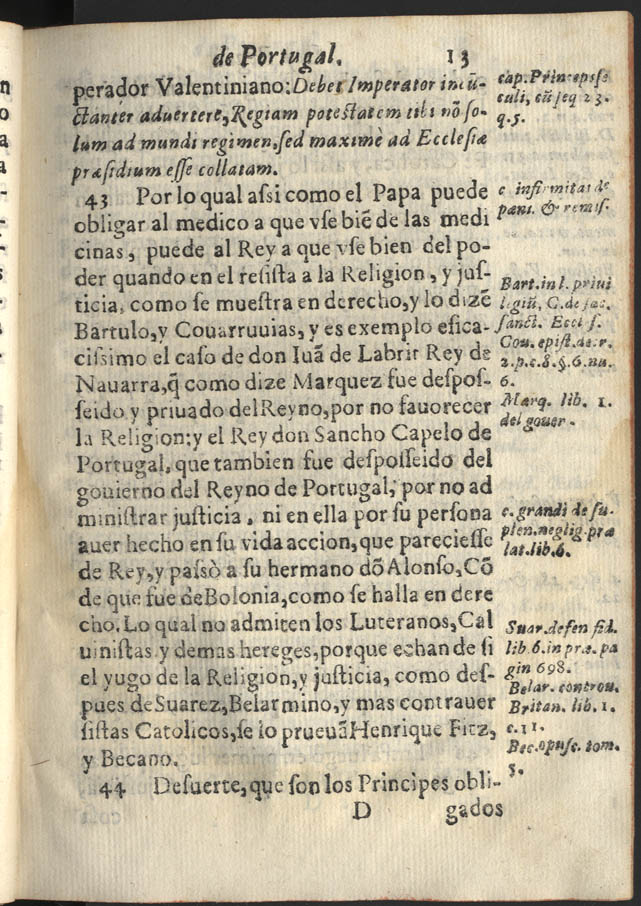 de Portugal. 13
perador Valentiniano: Debet Imperator incũ-
ctanter aduertere, Regiam potestatem tibi nõ so-
lum ad mundi regimen, sed maximè ad Ecclesiæ
præsidium esse collatam.
43 Por lo qual assi como el Papa puede
obligar al medico a que vse biẽ de las medi
cinas, puede al Rey a que vse bien del po-
der quando en el resista a la Religion, y jus-
ticia, como se muestra en derecho, y lo dizẽ
Bartulo, y Couarruuias, y es exemplo efica-
cissimo el caso de don Iuã de Labrit Rey de
Nauarra, q̃ como dize Marquez fue despos-
seido y priuado del Reyno, por no fauorecer
la Religion: y el Rey don Sancho Capelo de
Portugal, que tambien fue desposseido del
gouierno del Reyno de Portugal, por no ad
ministrar justicia, ni en ella por su persona
auer hecho en su vida accion, que pareciesse
de Rey, y passò a su hermano dõ Alonso, Cõ
de que fue de Bolonia, como se halla en dere
cho. Lo qual no admiten los Luteranos, Cal
uinistas y demas hereges, porque echan de si
el yugo de la Religion, y justicia, como des-
pues de Suarez, Belarmino, y mas contrauer
sistas Catolicos, se lo prueuã Henrique Fitz,
y Becano.
44 Desuerte, que son los Principes obli-
D gados
cap. Principes se
culi, cũ seq 23.
q. 5.
c infirmitas de
pæni. & remis.
Bart. in l. priui
legiũ, C. de sac.
sanct. Eccl s.
Cou. epist. de. r.
2. p. c. 8. §. 6. nu.
6.
Marq. lib. 1.
del gouer.
c. grandi de su-
plen. neglig. præ
lat. lib. 6.
Suar. defen fid.
lib. 6. in præ. pa
gin 698.
Belar. controu.
Britan. lib. 1.
c. 11.
Bec. opusc. tom.
5.